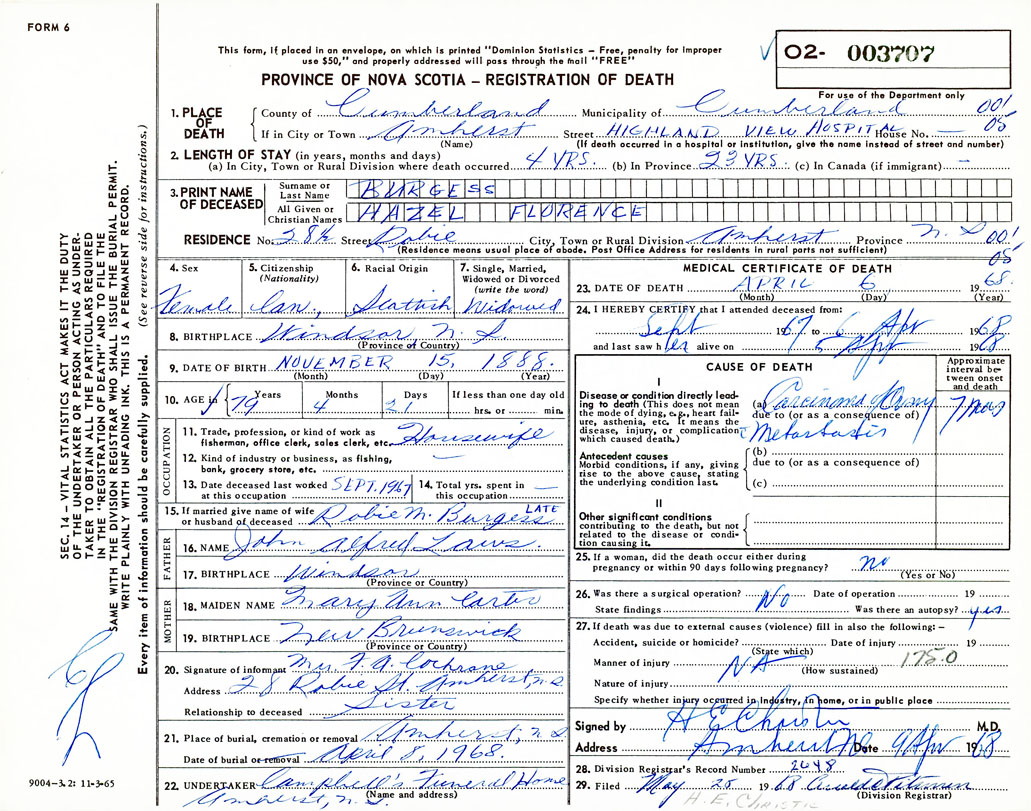 FORM 6
This form, if placed in an envelope, on which is printed "Dominion Statistics – Free, penalty for improper
use $50," and properly addressed will pass through the mail "FREE"
PROVINCE OF NOVA SCOTIA – REGISTRATION OF DEATH
02- 003707
For use of the Department only
1. PLACE OF DEATH
County of Cumberland Municipality of Cumberland 001
If in City or Town Amherst Street HIGHLAND VIEW HOSPITAL House No. — 05
(Name) (If death occurred in a hospital or institution, give the name instead of street and number)
2. LENGTH OF STAY (in years, months and days)
(a) In City, Town or Rural Division where death occurred 4 YRS. (b) In Province 23 YRS. (c) In Canada (if immigrant) —
3. PRINT NAME OF DECEASED
Surname or Last Name BURGESS
All Given or Christian Names HAZEL FLORENCE
RESIDENCE No. 28½ Street Robie City, Town or Rural Division Amherst Province N. S 001
(Residence means usual place of abode. Post Office Address for residents in rural parts not sufficient) 05
4. Sex Female
5. Citizenship (Nationality) Can.
6. Racial Origin Scottish
7. Single, Married, Widowed or Divorced (write the word) Widowed
8. BIRTHPLACE Windsor, N. S.
(Province or Country)
9. DATE OF BIRTH NOVEMBER 15, 1888.
(Month) (Day) (Year)
10. AGE in 79 Years 4 Months 21 Days If less than one day old hrs. or min.
OCCUPATION
11. Trade, profession, or kind of work as fisherman, office clerk, sales clerk, etc. Housewife
12. Kind of industry or business, as fishing, bank, grocery store, etc. —
13. Date deceased last worked at this occupation SEPT. 1967
14. Total yrs. spent in this occupation —
15. If married give name of wife or husband of deceased Robie M. Burgess LATE
FATHER
16. NAME John Alfred Laws.
17. BIRTHPLACE Windsor
(Province or Country)
MOTHER
18. MAIDEN NAME Mary Ann Carter
19. BIRTHPLACE New Brunswick
(Province or Country)
20. Signature of informant Mrs. F. A. Cochrane
Address 28 Robie St. Amherst, N.S
Relationship to deceased Sister
21. Place of burial, cremation or removal Amherst, N.S
Date of burial or removal April 8, 1968.
22. UNDERTAKER Campbell's Funeral Home
(Name and address)
Amherst, N.S.
MEDICAL CERTIFICATE OF DEATH
23. DATE OF DEATH APRIL 6 1968.
(Month) (Day) (Year)
24. I HEREBY CERTIFY that I attended deceased from:
Sept 1967 to 6 Apr 1968
and last saw her alive on 5 Apr 1968
CAUSE OF DEATH
Approximate interval between onset and death
I
Disease or condition directly leading to death (This does not mean the mode of dying, e.g., heart failure, asthenia, etc. It means the disease, injury, or complication which caused death.)
(a) Carcinoma of Ovary 7 mos
due to (or as a consequence of)
Metastasis
Antecedent causes
Morbid conditions, if any, giving rise to the above cause, stating the underlying condition last.
(b)
due to (or as a consequence of)
(c)
II
Other significant conditions
contributing to the death, but not related to the disease or condition causing it.
25. If a woman, did the death occur either during pregnancy or within 90 days following pregnancy? no
(Yes or No)
26. Was there a surgical operation? No Date of operation 19
State findings Was there an autopsy? yes
27. If death was due to external causes (violence) fill in also the following: –
Accident, suicide or homicide? Date of injury 19
(State which) 175.0
Manner of injury NA (How sustained)
Nature of injury
Specify whether injury occurred in Industry, in home, or in public place
Signed by H E Christie M.D.
Address Amherst NS Date 9 Apr 1968
28. Division Registrar's Record Number 2648
29. Filed May 25 1968
(Division Registrar)
H. E. CHRISTIE
SEC. 14 – VITAL STATISTICS ACT MAKES IT THE DUTY
OF THE UNDERTAKER OR PERSON ACTING AS UNDER-
TAKER TO OBTAIN ALL THE PARTICULARS REQUIRED
IN THE "REGISTRATION OF DEATH" AND TO FILE THE
SAME WITH THE DIVISION REGISTRAR WHO SHALL ISSUE THE BURIAL PERMIT.
WRITE PLAINLY WITH UNFADING INK. THIS IS A PERMANENT RECORD.
Every item of information should be carefully supplied. (See reverse side for instructions.)
9004–3.2: 11-3-65